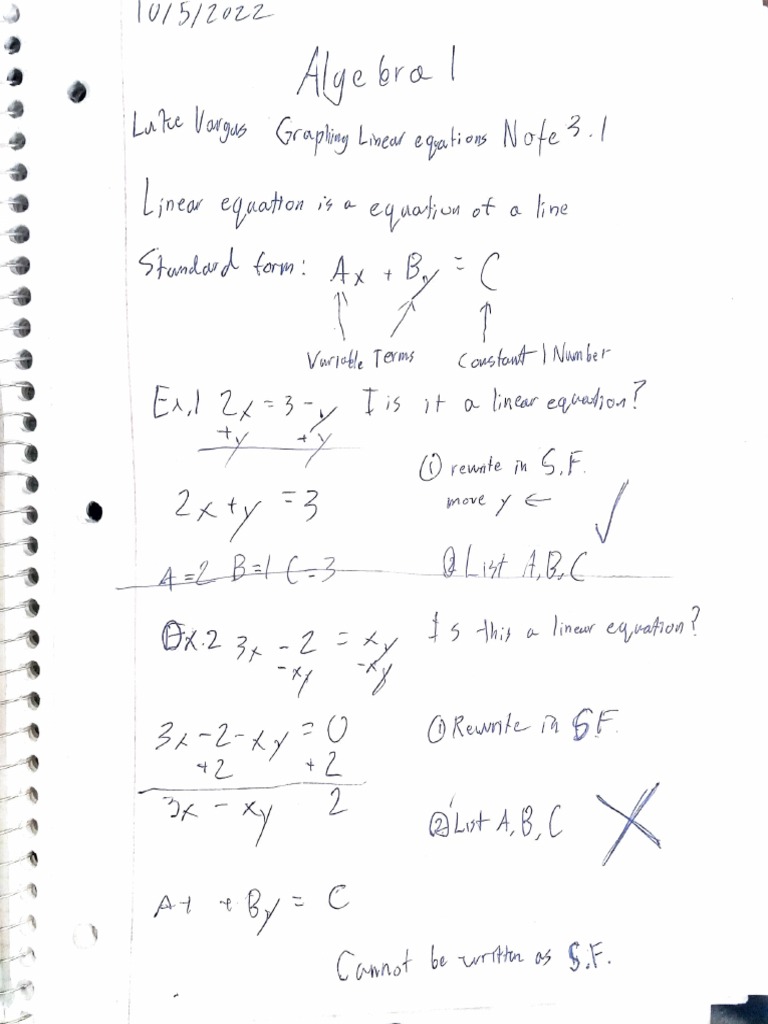 10/5/2022
Algebra 1
Luke Vargus Graphing Linear equations Note 3.1
Linear equation is a equation of a line
Standard form: Ax + By = C
Variable Terms Constant | Number
Ex.1 2x = 3 - y Is it a linear equation?
+y +y
① rewrite in S.F.
move y ←
2x + y = 3 ✓
A=2 B=1 C=3 ② List A,B,C
Ex.2 3x - 2 = xy Is this a linear equation?
-xy -xy
3x - 2 - xy = 0 ① Rewrite in S.F.
+2 +2
3x - xy 2
② List A, B, C X
Ax + By = C
Cannot be written as S.F.